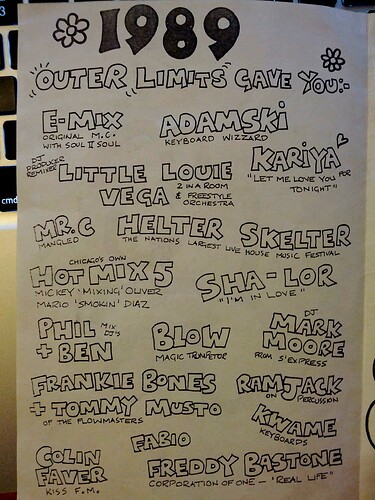 1989
"OUTER LIMITS" GAVE YOU:-
E-MIX
ORIGINAL M.C.
WITH SOUL II SOUL
ADAMSKI
KEYBOARD WIZZARD
DJ
PRODUCER
REMIXER
LITTLE LOUIE
VEGA
2 IN A ROOM
& FREESTYLE
ORCHESTRA
KARIYA
"LET ME LOVE YOU FOR
TONIGHT"
MR.C
MANGLED
HELTER SKELTER
THE NATIONS LARGEST LIVE HOUSE MUSIC FESTIVAL
CHICAGO'S OWN
HOT MIX 5
MICKEY 'MIXING' OLIVER
MARIO 'SMOKIN' DIAZ
SHA-LOR
"I'M IN LOVE"
PHIL
+ BEN
MIX
DJ'S
BLOW
MAGIC TRUMPETOR
DJ
MARK
MOORE
FROM S'EXPRESS
FRANKIE BONES
+ TOMMY MUSTO
OF THE FLOWMASTERS
RAMJACK
ON PERCUSSION
KWAME
KEYBOARDS
FABIO
COLIN
FAVER
KISS F.M.
FREDDY BASTONE
CORPORATION OF ONE - 'REAL LIFE"
cmd